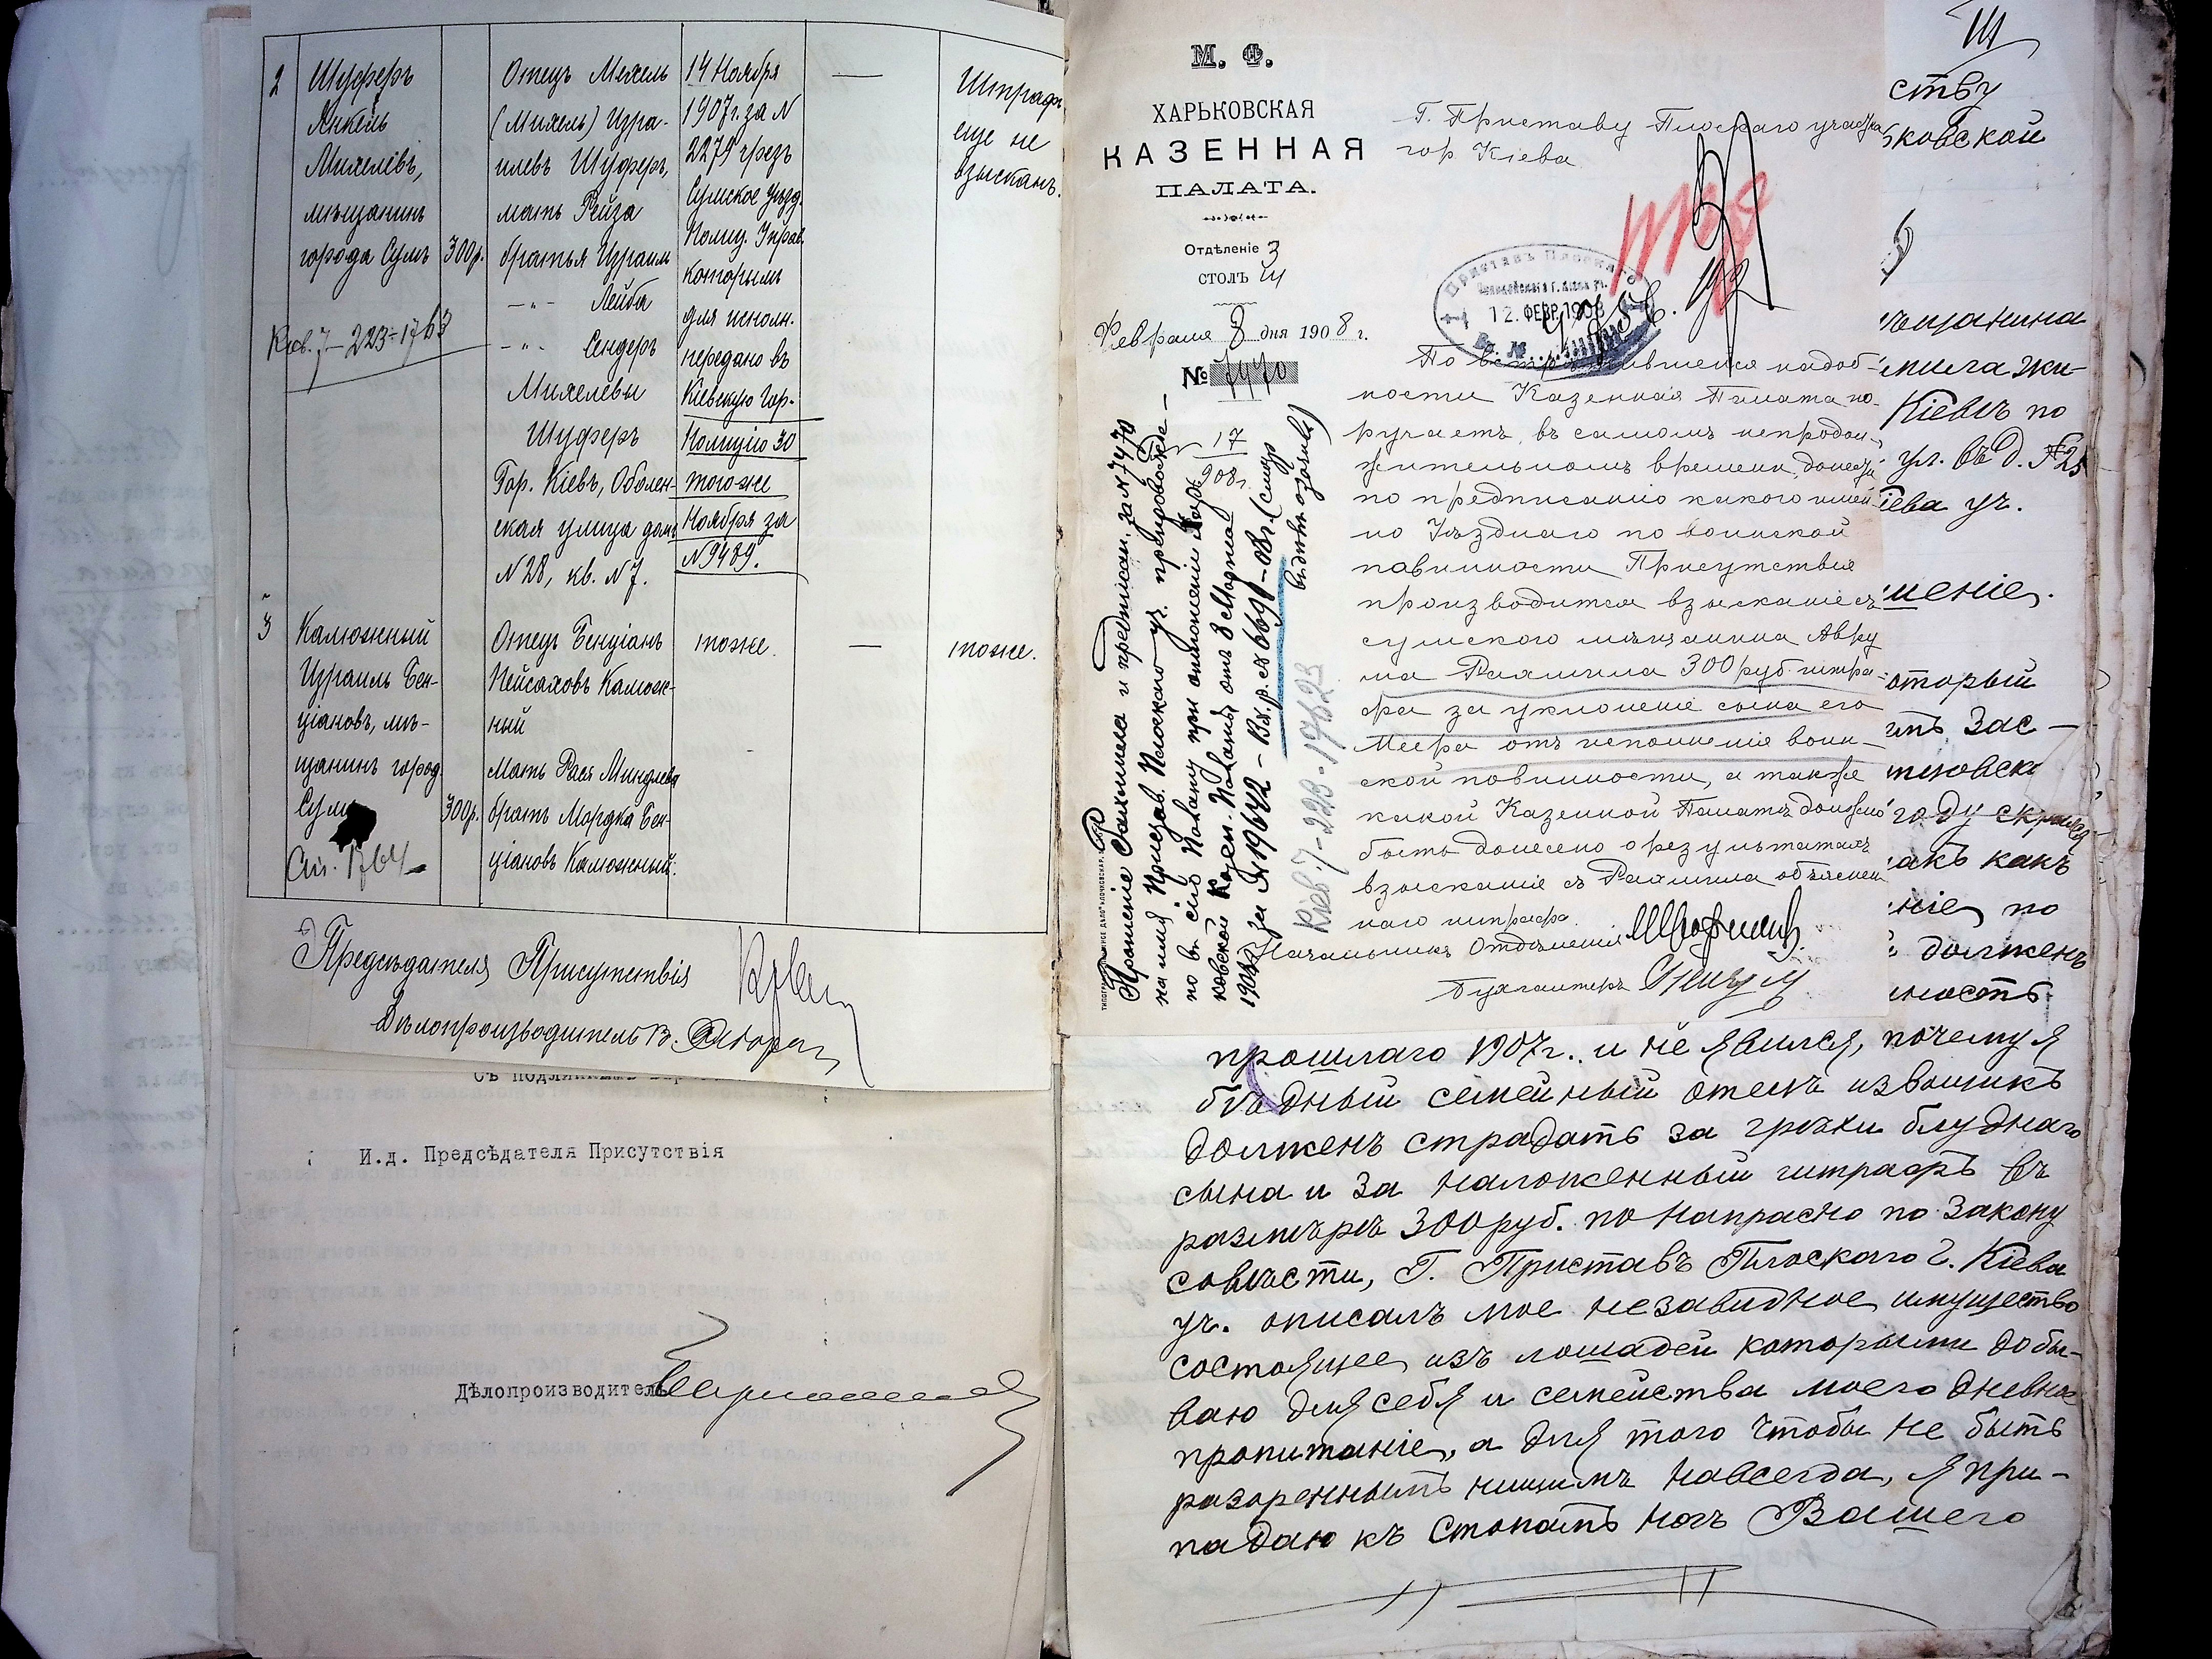 2
Шуферъ
Янкель
Михелевъ,
мѣщанинъ
города Сумъ
300р.
Отецъ Мехель
(Михель) Изра-
илевъ Шуферъ,
мать Рейза
братья Израиль
–"– Лейба
–"– Сендеръ
Михелевы
Шуферъ
Гор. Кіевъ, Оболон-
ская улица домъ
№28, кв. №7.
14 Ноября
1907г. за №
2279 чрезъ
Сумское Уѣзд.
Полиц. Управ.
которымъ
для исполн.
передано въ
Кіевскую Гор.
Полицію 30
тогоже
Ноября за
№9489.
—
Штрафъ
еще не
взысканъ.
223-1763
3
Калюжный
Израиль Бен-
ціановъ, мѣ-
щанинъ город.
Сумъ
1764
300р.
Отецъ Бенціанъ
Пейсаховъ Калюж-
ный
Мать Рася Минделева
братъ Мордка Бен-
ціановъ Калюжный.
тоже.
—
тоже.
Предсѣдателя Присутствія
Дѣлопроизводитель В.
Съ подлиннымъ
И.д. Предсѣдателя Присутствія
Дѣлопроизводитель
М. Ф.
ХАРЬКОВСКАЯ
КАЗЕННАЯ
ПАЛАТА.
Отдѣленіе 3
СТОЛЪ III
Февраля 8 дня 1908 г.
№ 7470
Г. Приставу Плоскаго участка
гор Кіева
Приставъ Плоскаго
12. ФЕВР. 1908
Вх. №
По встрѣтившейся надоб-
ности Казенная Палата по-
ручаетъ, въ самомъ непродол-
жительномъ времени, донести
по предписанію какого имен-
но Уѣзднаго по воинской
повинности Присутствія
производится взысканіе съ
сумского мѣщанина Авру
ма Рахмила 300 руб. штра-
фа за уклоненіе сына его
Меера отъ исполненія воин-
ской повинности, а также
какой Казенной Палатѣ должно
быть донесено о результатахъ
взысканія съ Рахмила объяснен
наго штрафа.
Начальникъ Отдѣленія
Бухгалтеръ
Прошеніе Рахмила и предписан. за №7470
на имя Пристав. Плоскаго уч. препровожде-
но въ сію Палату при отношеніи Харь-
ковской Казен. Палаты отъ 8 Марта
1908г за №19642 – Вх. р. ст 6690 – 08г. (смотр
17
908г.
223-17623
ству
ьковской
ѣщанина
Кіевѣ по
ул. въ д. №25
іева уч.
шеніе.
оторый
году скрылся
акъ какъ
ніе по
долженъ
ность
прошлаго 1907г. и не явился, почему я
бѣдный семейный отецъ извощикъ
долженъ страдать за грѣхи блуднаго
сына и за наложенный штрафъ въ
размѣрѣ 300 руб. по напрасно по закону
совѣсти, Г. Приставъ Плоскаго г. Кіева
уч. описалъ мое незавидное имущество
состоящее изъ лошадей которыми добы-
ваю для себя и семейства моего дневное
пропитаніе, а для того чтобы не быть
разореннымъ нищимъ навсегда, я при-
падаю къ стопамъ ногъ Вашего